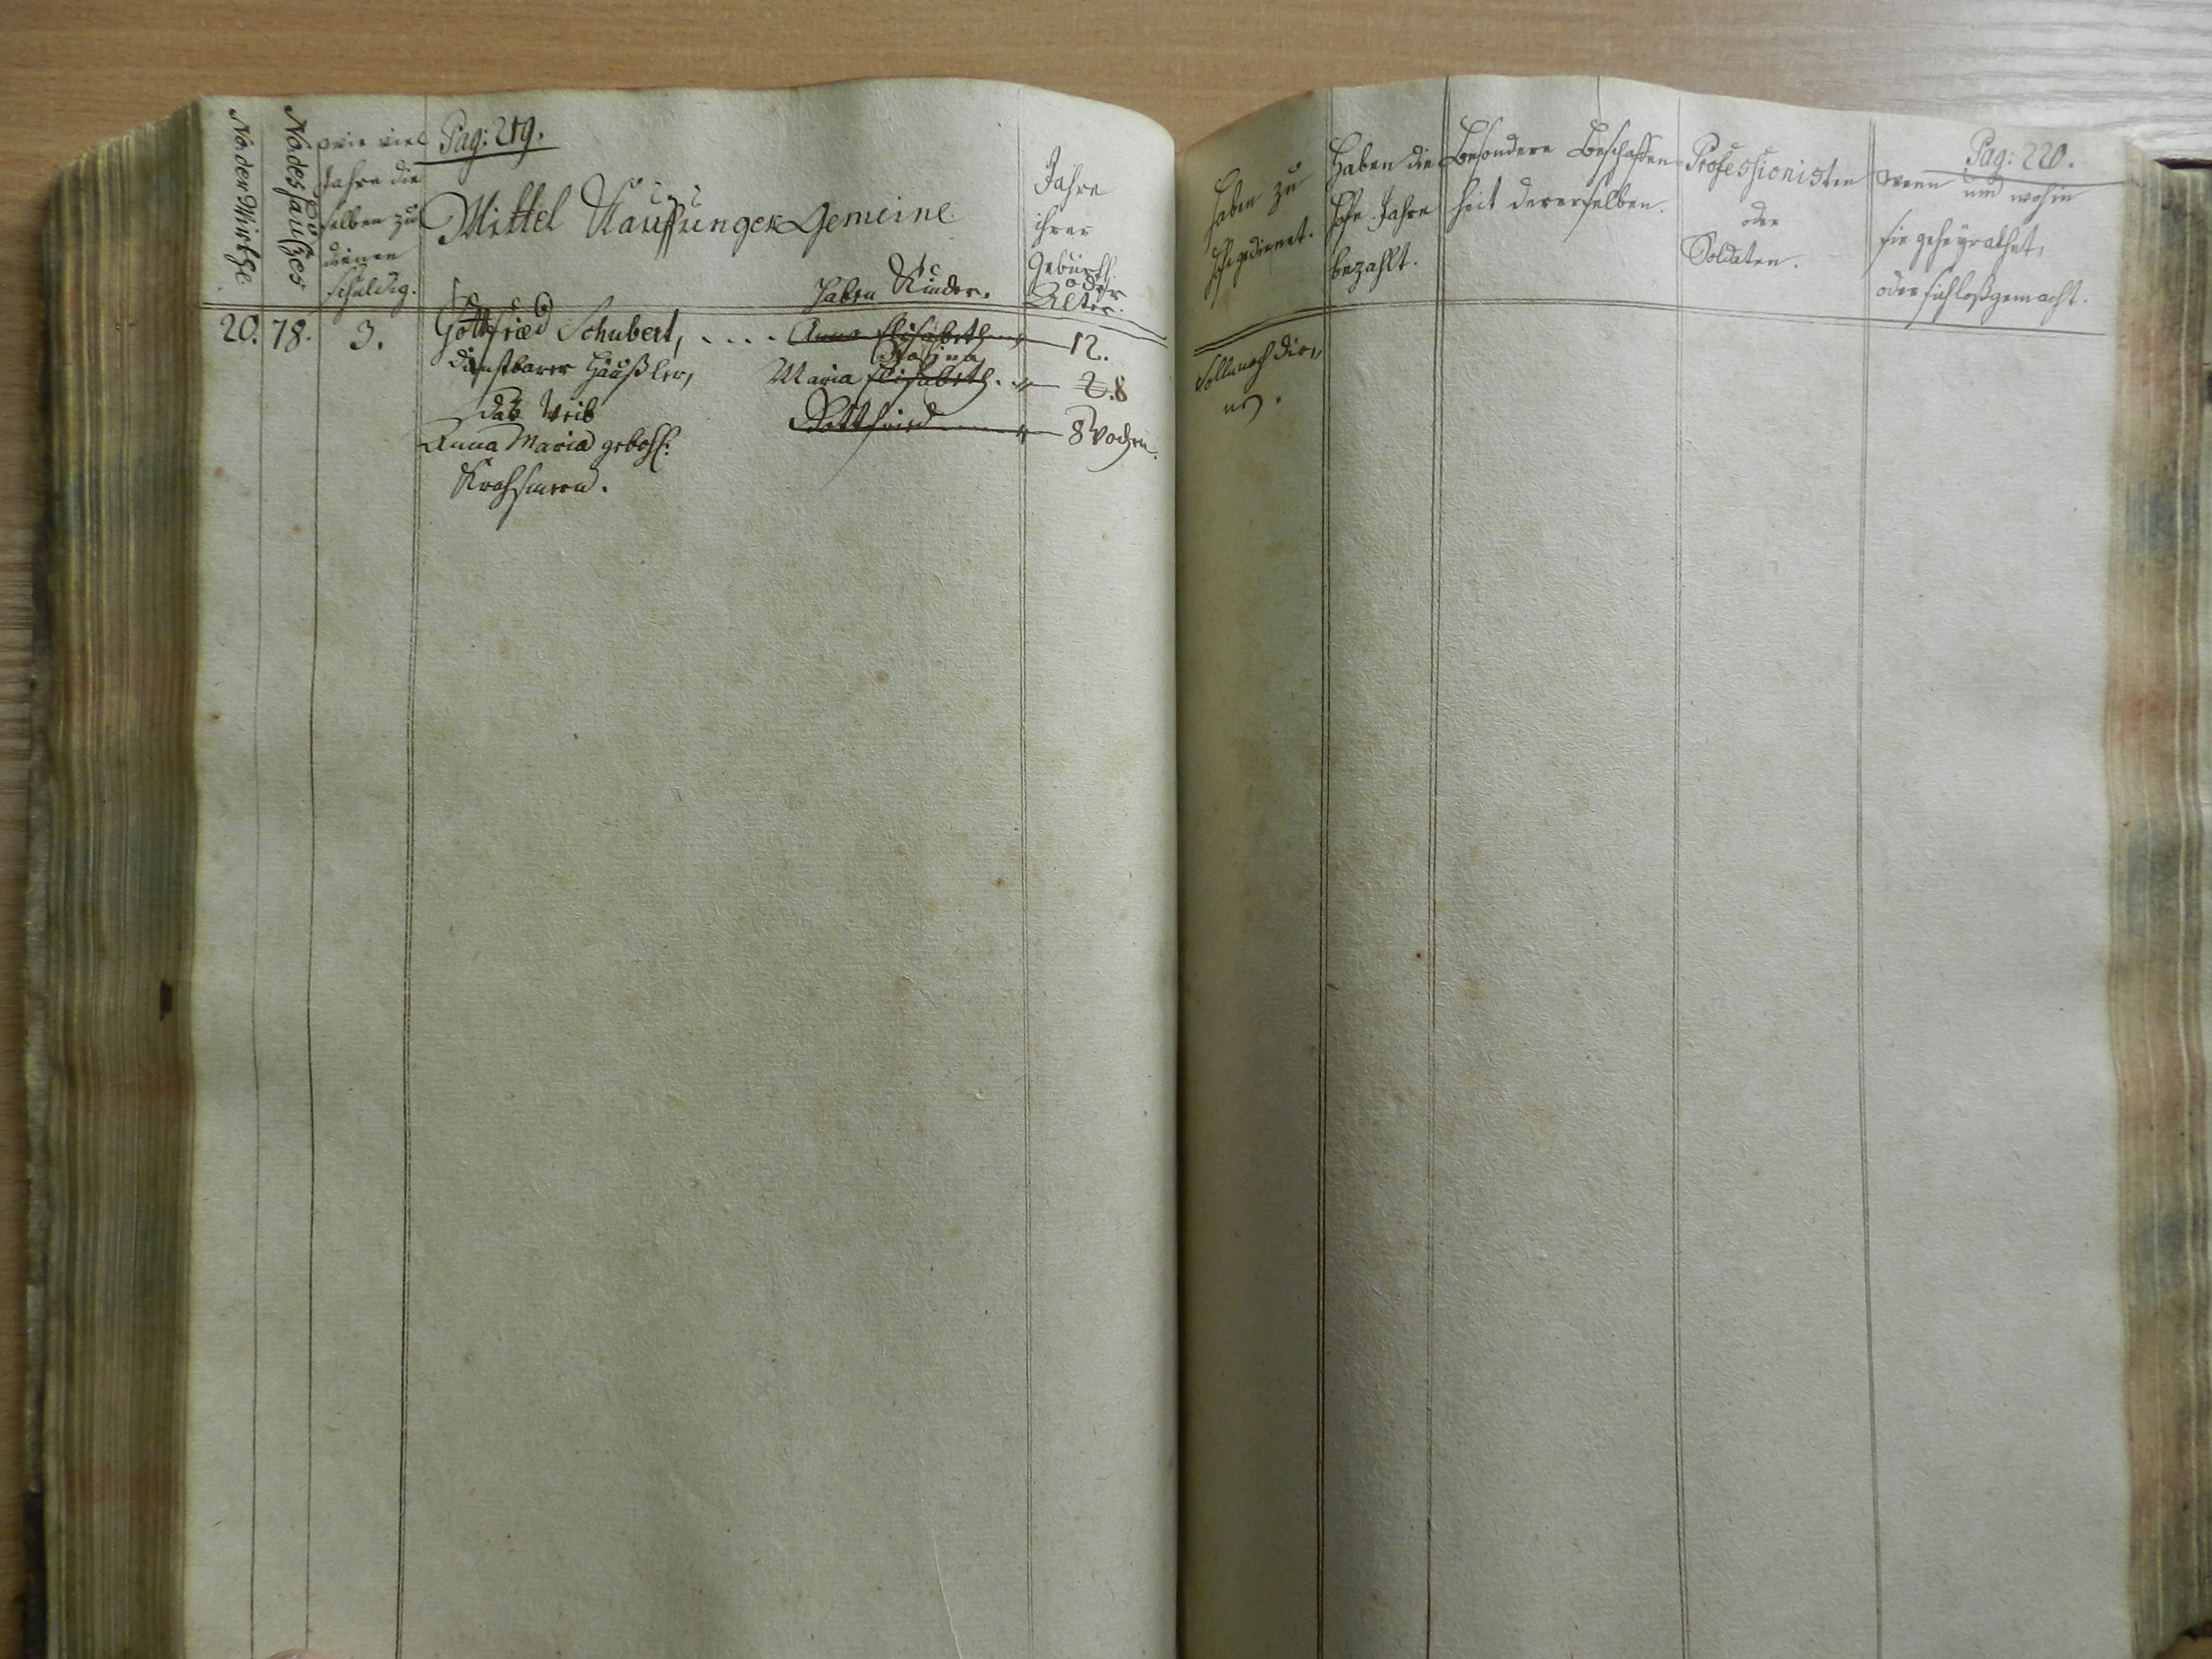 No. der Wirthe
No. des Haußes
wie viel
Jahre die
selben zu
dienen
schuldig.
Pag: 219.
Mittel Kauffunger Gemeine.
haben Kinder.
Jahre
ihrer
Geburth.
oder
Alter.
20. 78. 3. Gottfried Schubert, .... Anna Elisabeth 12.
Rosina
dienstbarer Häußler, Maria Elisabeth. 2. 8
das Weib Gottfried 8 Wochen.
Anna Maria gebohr.
haben zu
Hofe gedienet.
Haben die
Hofe-Jahre
bezahlt.
Besondere Beschaffen-
heit dererselben.
Professionisten
oder
Soldaten.
Pag: 220.
wenn und wohin
sie geheyrathet,
oder sich loßgemacht.
Soll noch die,,
nen.